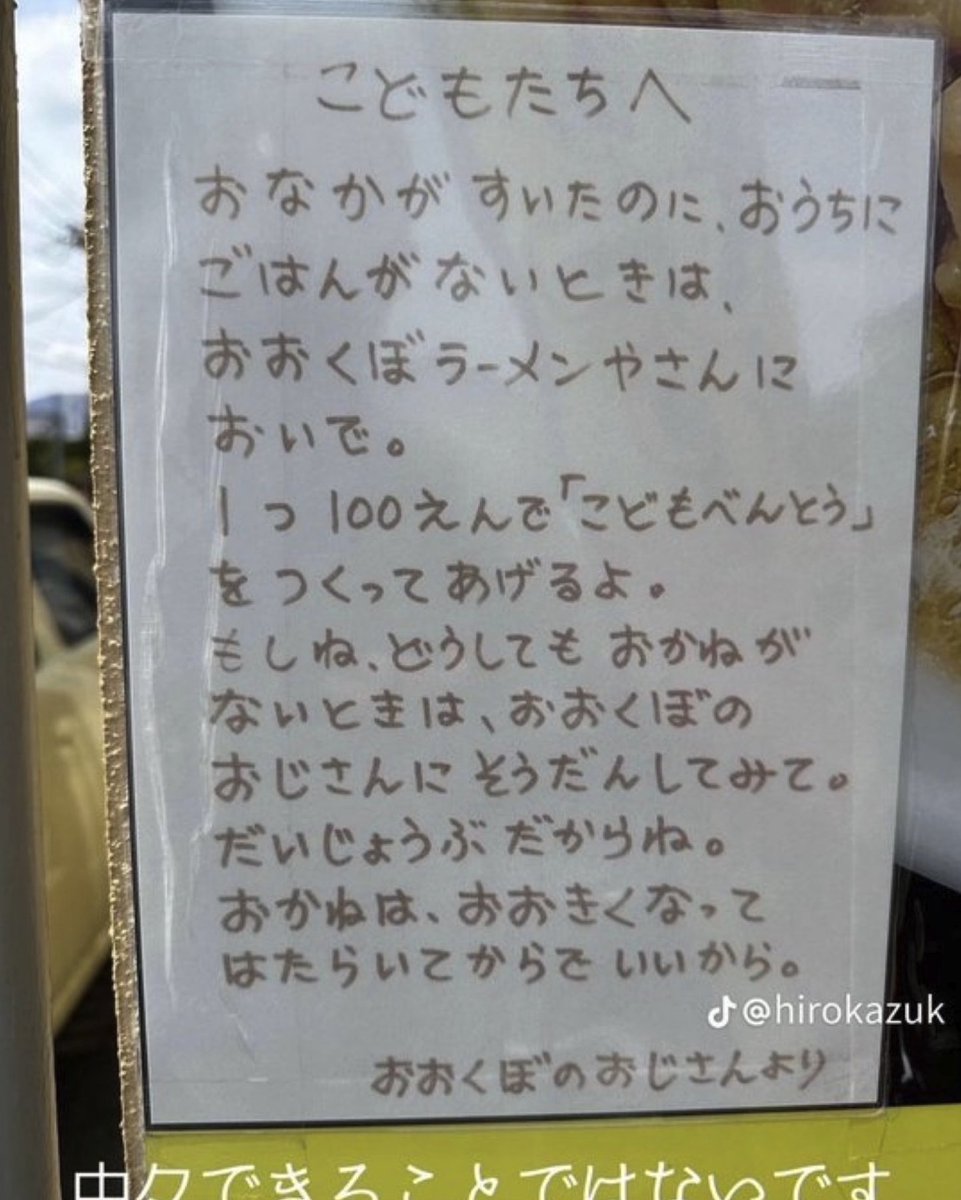 こどもたちへ
おなかがすいたのに、おうちに
ごはんがないときは、
おおくぼラーメンやさんに
おいで。
1つ100えんで「こどもべんとう」
をつくってあげるよ。
もしね、どうしてもおかねが
ないときは、おおくぼの
おじさんにそうだんしてみて。
だいじょうぶだからね。
おかねは、おおきくなって
はたらいてからでいいから。
@hirokazuk
おおくぼのおじさんより
中々できることではないです